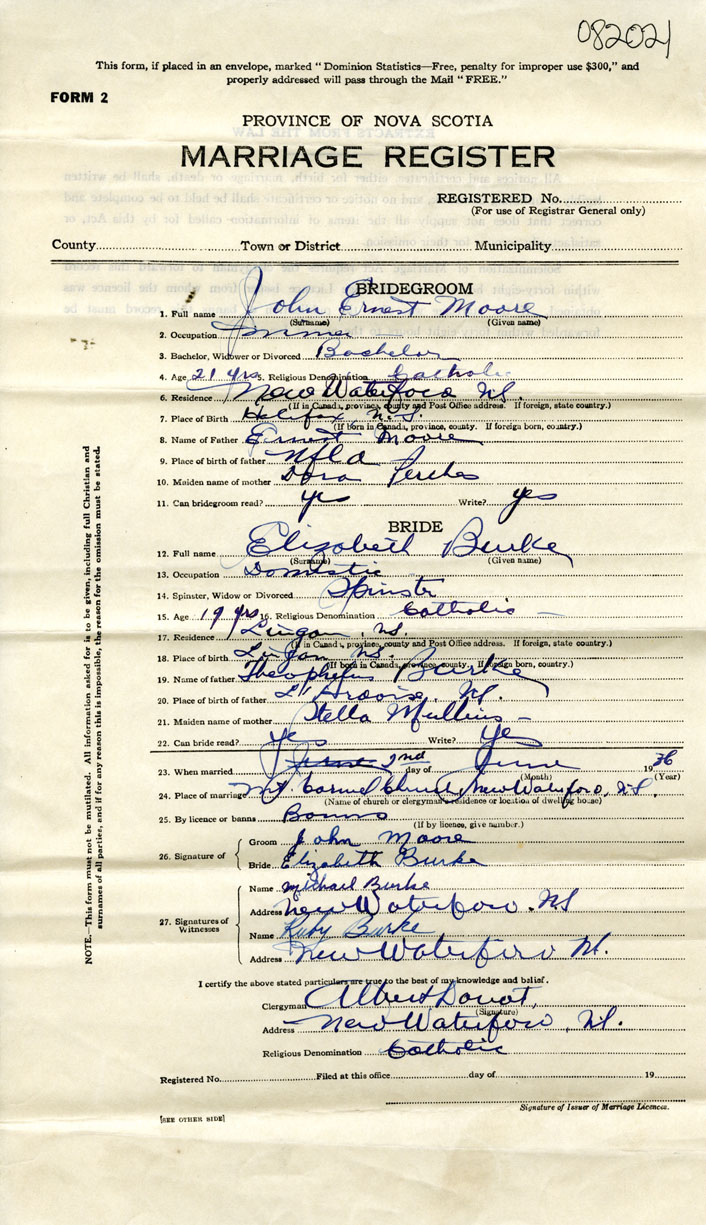 082021
This form, if placed in an envelope, marked "Dominion Statistics—Free, penalty for improper use $300," and
properly addressed will pass through the Mail "FREE."
FORM 2
PROVINCE OF NOVA SCOTIA
MARRIAGE REGISTER
REGISTERED No.
(For use of Registrar General only)
County Town or District Municipality
BRIDEGROOM
1. Full name John Ernest Moore
(Surname) (Given name)
2. Occupation
3. Bachelor, Widower or Divorced Bachelor
4. Age 21 yrs 5. Religious Denomination Catholic
6. Residence New Waterford NS.
(If in Canada, province, county and Post Office address. If foreign, state country.)
7. Place of Birth Halifax, N.S.
(If born in Canada, province, county. If foreign born, country.)
8. Name of Father Ernest Moore
9. Place of birth of father Nfld
10. Maiden name of mother Dora
11. Can bridegroom read? yes Write? yes
BRIDE
12. Full name Elizabeth Burke
(Surname) (Given name)
13. Occupation Domestic
14. Spinster, Widow or Divorced Spinster
15. Age 19 yrs 16. Religious Denomination Catholic
17. Residence Lingan, NS.
(If in Canada, province, county and Post Office address. If foreign, state country.)
18. Place of birth Lingan NS.
(If born in Canada, province, county. If foreign born, country.)
19. Name of father Burke
20. Place of birth of father L'Ardoise, NS.
21. Maiden name of mother Stella Mullins
22. Can bride read? Yes Write? Yes
23. When married 2nd day of June 1936
(Month) (Year)
24. Place of marriage Mt. Carmel Church, New Waterford, NS.
(Name of church or clergyman's residence or location of dwelling house)
25. By licence or banns Banns
(If by licence, give number.)
26. Signature of Groom John Moore
Bride Elizabeth Burke
27. Signatures of Witnesses Name Michael Burke
Address New Waterford. NS
Name Ruby Burke
Address New Waterford NS.
I certify the above stated particulars are true to the best of my knowledge and belief.
Clergyman Albert
(Signature)
Address New Waterford, NS.
Religious Denomination Catholic
Registered No. Filed at this office day of 19
Signature of Issuer of Marriage Licences.
[SEE OTHER SIDE]
NOTE.—This form must not be mutilated. All information asked for is to be given, including full Christian and
surnames of all parties, and if for any reason this is impossible, the reason for the omission must be stated.